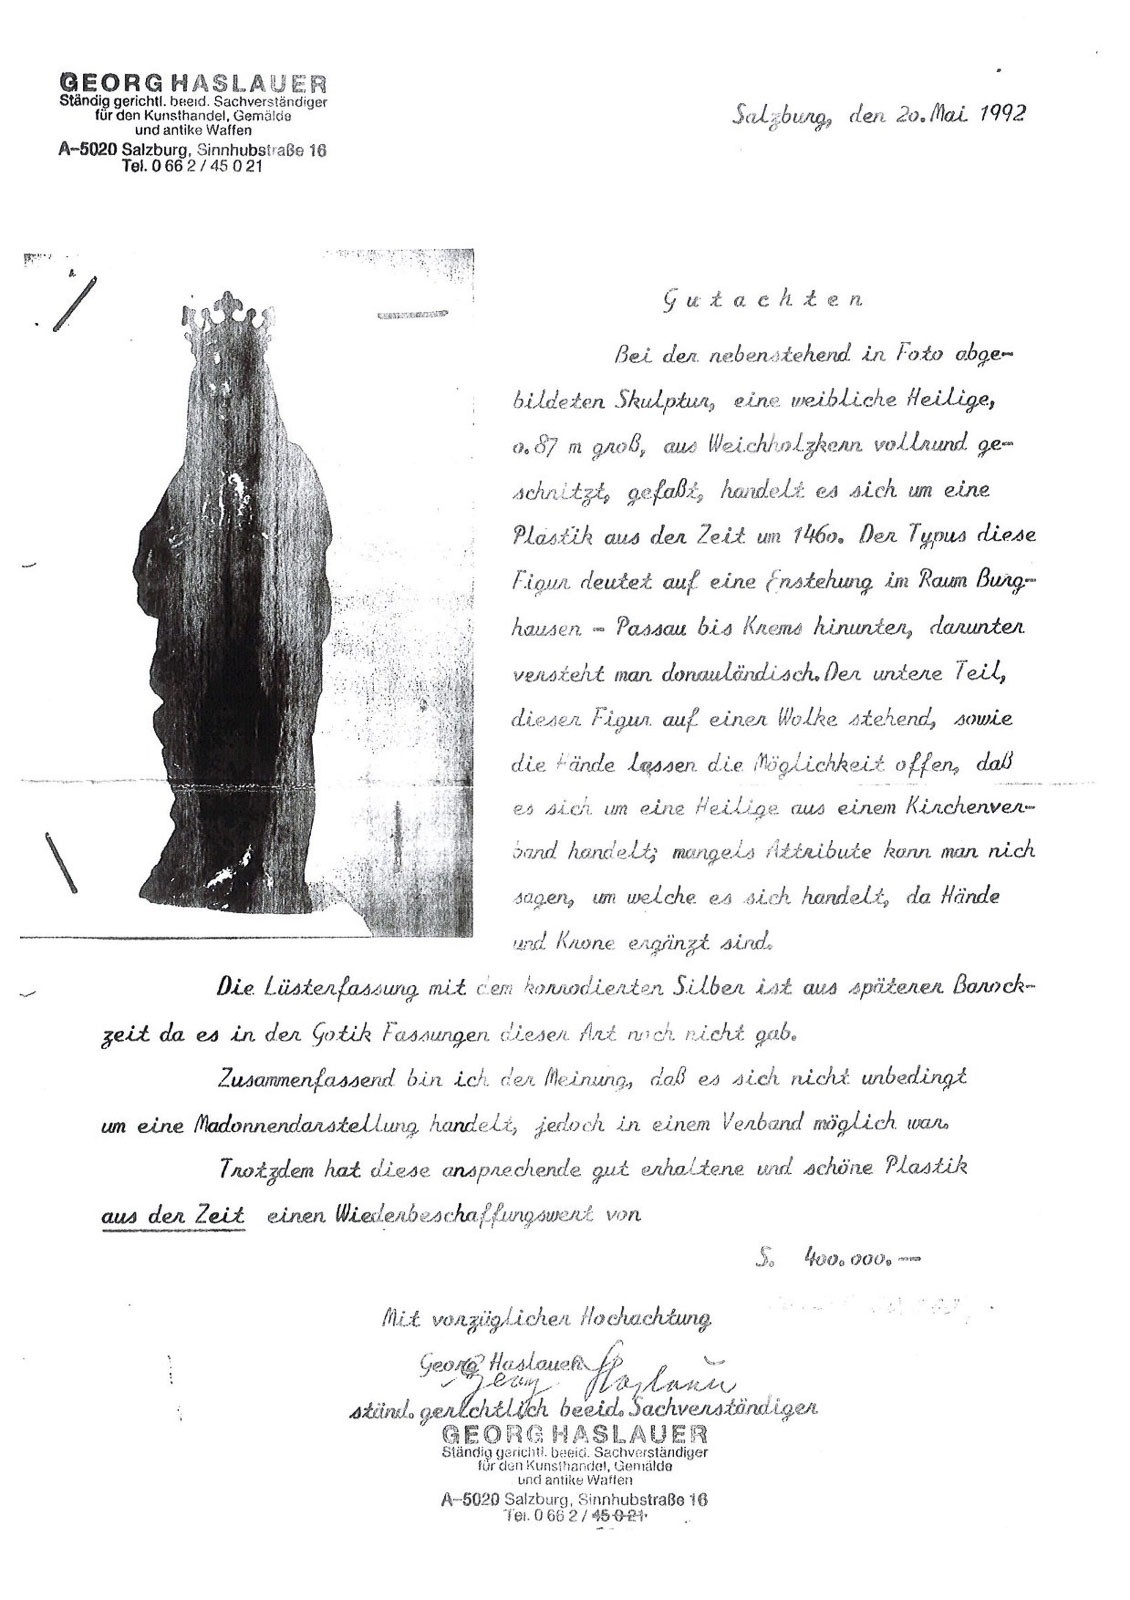 GEORG HASLAUER
Ständig gerichtl. beeid. Sachverständiger
für den Kunsthandel, Gemälde
und antike Waffen
A-5020 Salzburg, Sinnhubstraße 16
Tel. 0 66 2 / 45 0 21
Salzburg, den 20. Mai 1992
Gutachten
Bei der nebenstehend in Foto abge-
bildeten Skulptur, eine weibliche Heilige,
0.87 m groß, aus Weichholzkern vollrund ge-
schnitzt, gefaßt, handelt es sich um eine
Plastik aus der Zeit um 1460. Der Typus diese
Figur deutet auf eine Enstehung im Raum Burg-
hausen - Passau bis Krems hinunter, darunter
versteht man donauländisch. Der untere Teil,
dieser Figur auf einer Wolke stehend, sowie
die Hände lassen die Möglichkeit offen, daß
es sich um eine Heilige aus einem Kirchenver-
band handelt; mangels Attribute kann man nich
sagen, um welche es sich handelt, da Hände
und Krone ergänzt sind.
Die Lüsterfassung mit dem korrodierten Silber ist aus späterer Barock-
zeit da es in der Gotik Fassungen dieser Art noch nicht gab.
Zusammenfassend bin ich der Meinung, daß es sich nicht unbedingt
um eine Madonnendarstellung handelt, jedoch in einem Verband möglich war.
Trotzdem hat diese ansprechende gut erhaltene und schöne Plastik
aus der Zeit einen Wiederbeschaffungswert von
S. 400.000.—
Mit vorzüglicher Hochachtung
Georg Haslauer
Georg Haslauer
ständ. gerichtlich beeid. Sachverständiger
GEORG HASLAUER
Ständig gerichtl. beeid. Sachverständiger
für den Kunsthandel, Gemälde
und antike Waffen
A-5020 Salzburg, Sinnhubstraße 16
Tel. 0 66 2 / 45 0 21